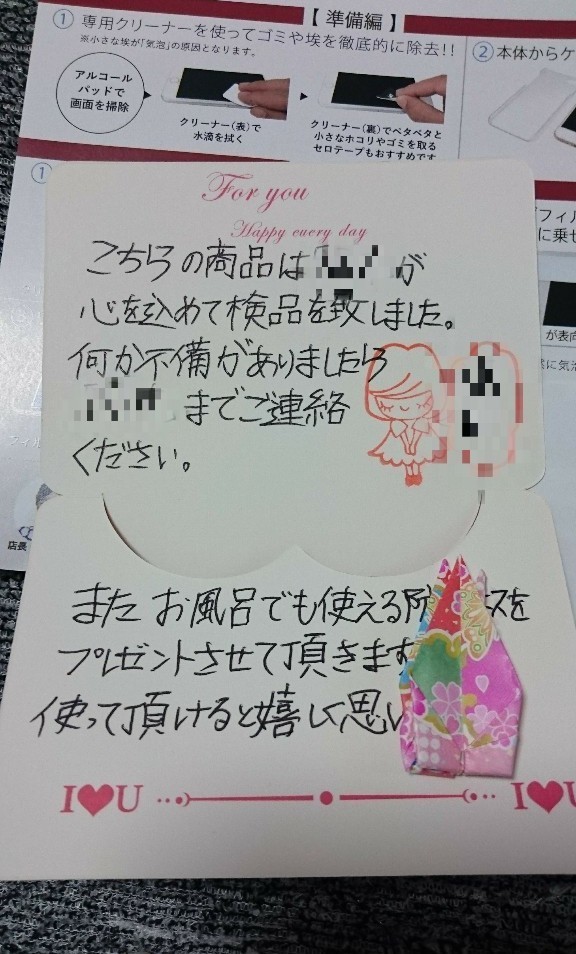 【準備編】
① 専用クリーナーを使ってゴミや埃を徹底的に除去!!
※小さな埃が「気泡」の原因となります。
アルコール
パッドで
画面を掃除
クリーナー(表)で
水滴を拭く
クリーナー(裏)でペタペタと
小さなホコリやゴミを取る
セロテープもおすすめです
② 本体からケ
①
フィル
に乗せ
が表向
に気泡
For you
Happy every day
こちらの商品は が
心を込めて検品を致しました。
何か不備がありましたら
までご連絡
ください。
フィル
店長
また お風呂でも使える防 ースを
プレゼントさせて頂きます
使って頂けると嬉しく思い
I♥U
I♥U